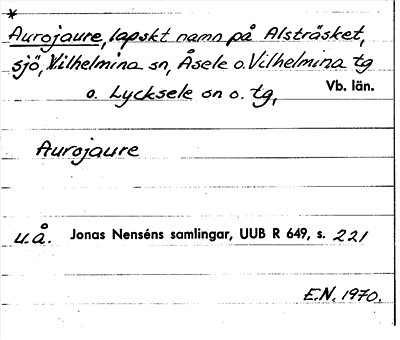 *
Aurojaure, lapskt namn på Alsträsket,
sjö, Vilhelmina sn, Åsele o. Vilhelmina tg
o. Lycksele sn o. tg, Vb. län.
Aurojaure
u.å. Jonas Nenséns samlingar, UUB R 649, s. 221
E.N. 1970.